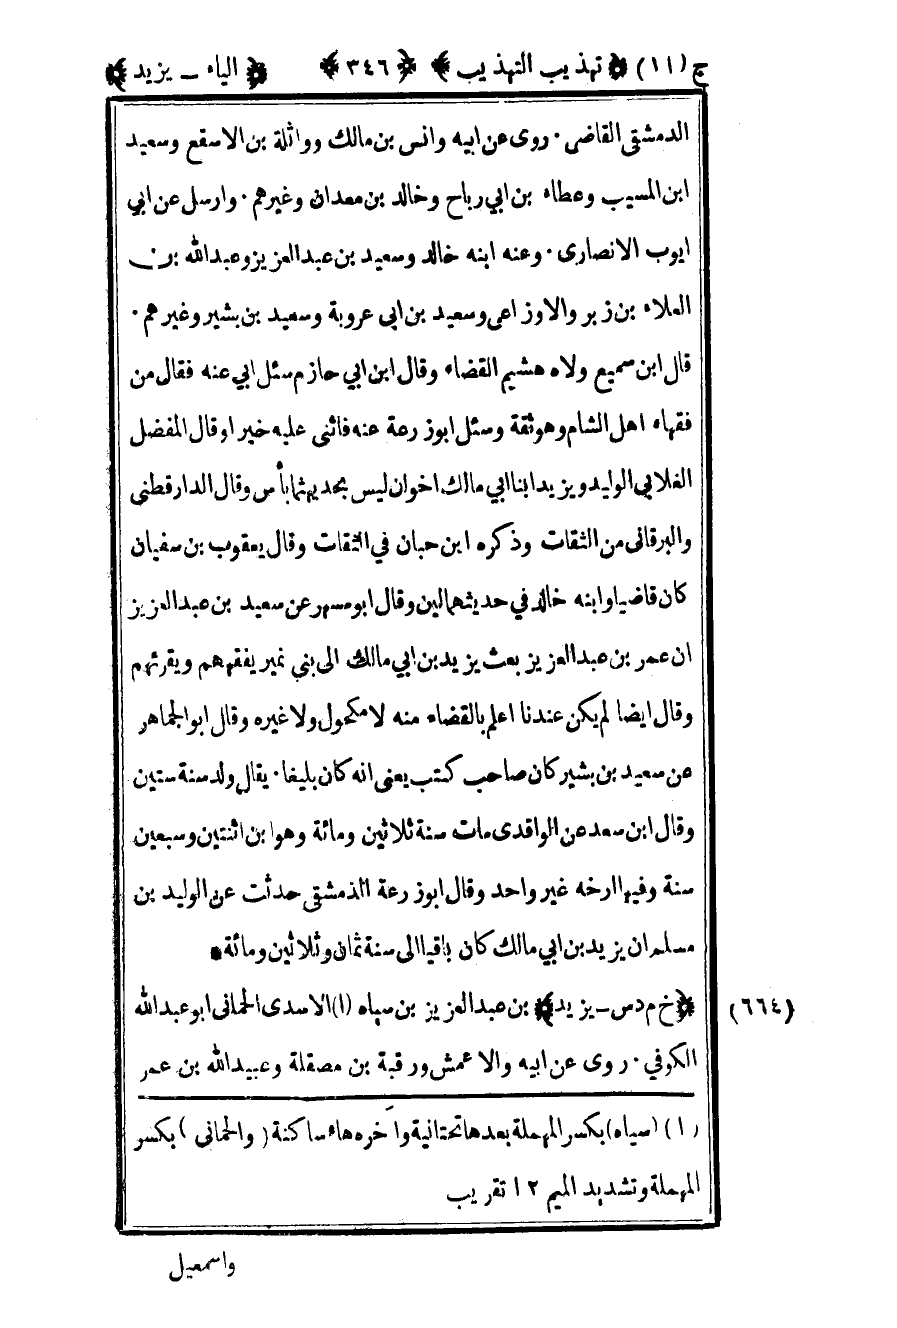 ج (١١) ﴿ تهذيب التهذيب ﴾ ﴿ ٣٤٦ ﴾ ﴿ الياء ــ يزيد ﴾
الدمشقي القاضي · روى عن ابيه وانس بن مالك وواثلة بن الاسقع وسعيد
ابن المسيب وعطاء بن ابي رباح وخالد بن معدان وغيرهم · وارسل عن ابي
ايوب الانصارى · وعنه ابنه خالد وسعيد بن عبد العزيز وعبد الله بن
العلاء بن زبر والاوزاعى وسعيد بن ابى عروبة وسعيد بن بشير وغيرهم ·
قال ابن سميع ولاه هشيم القضاء وقال ابن ابي حازم سئل ابي عنه فقال من
فقهاء اهل الشام وهو ثقة وسئل ابوزرعة عنه فاثنى عليه خيرا وقال المفضل
الغلابي الوليد ويزيد ابنا ابي مالك اخوان ليس بحديثهما بأس وقال الدارقطنى
والبرقانى من الثقات وذكره ابن حبان في الثقات وقال يعقوب بن سفيان
كان قاضيا وابنه خالد في حديثهما لين وقال ابو مسهر عن سعيد بن عبد العزيز
ان عمر بن عبد العزيز بعث يزيد بن ابي مالك الى بني نمير يفقههم ويقرئهم
وقال ايضا لم يكن عندنا اعلم بالقضاء منه لا مكحول ولا غيره وقال ابو الجماهر
عن سعيد بن بشير كان صاحب كتب يعنى انه كان بليغا · يقال ولد سنة ستين
وقال ابن سعد عن الواقدى مات سنة ثلاثين ومائة وهو ابن اثنتين وسبعين
سنة وفيها ارخه غير واحد وقال ابوزرعة الدمشقي حدثت عن الوليد بن
مسلم ان يزيد بن ابي مالك كان باقيا الى سنة ثمان وثلاثين ومائة *
(٦٦٤) ﴿ خ م د س ــ يزيد ﴾ بن عبد العزيز بن سياه (١) الاسدى الحمانى ابو عبد الله
الكوفي · روى عن ابيه والاعمش ورقبة بن مصقلة وعبيد الله بن عمر
(١) (سياه) بكسر المهملة بعدها تحتانية وآخره هاء ساكنة (والحمانى) بكسر
المهملة وتشديد الميم ١٢ تقريب
واسمعيل